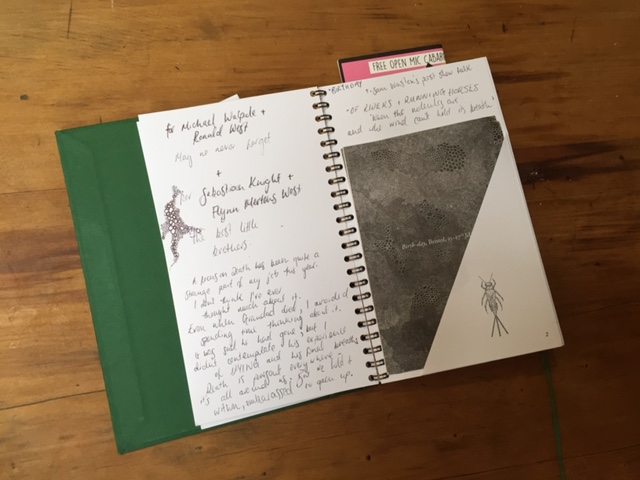 for Michael Walpole +
Ronald West
May we never forget
+
for Sebastian Knight +
Flynn Mertens West
The best little
brothers.
A person Death has been quite a
strange part of my life this year.
I don't think I've ever
thought much about it.
Even when Grandad died, I avoided
spending time thinking about it.
It was sad he had gone, but I
didn't contemplate his experience
of DYING and his final breaths
Death is present everywhere -
it's all around us. Yet we hold it
within, embarrassed to open up.
FREE OPEN MIC CABAR
BIRTHDAY + Sam Winstons post show talk
"OF RIVERS + RUNNING HORSES
When the molecules are
and the wind can't hold its breath"
Birth-day, Bristol,
2